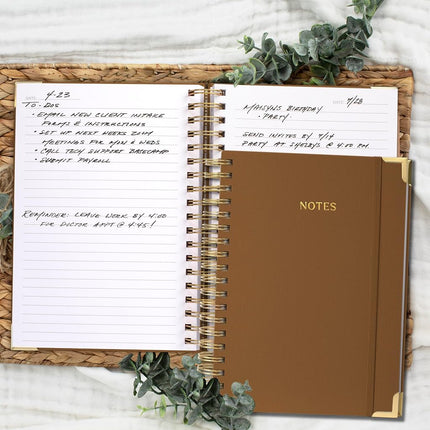 DATE 4-23
TO-DOS
• EMAIL NEW CLIENT INTAKE
FORMS & INSTRUCTIONS
• SET UP NEXT WEEKS ZOOM
MEETINGS FOR MON & WEDS
• CALL TECH SUPPORT BASECAMP
• SUBMIT PAYROLL
REMINDER: LEAVE WORK BY 4:00
FOR DOCTOR APPT @ 4:45!
MAISYN'S BIRTHDAY
DATE 7/28
- PARTY
SEND INVITES BY 7/14
PARTY AT SHELBYS @ 4:00 PM
NOTES